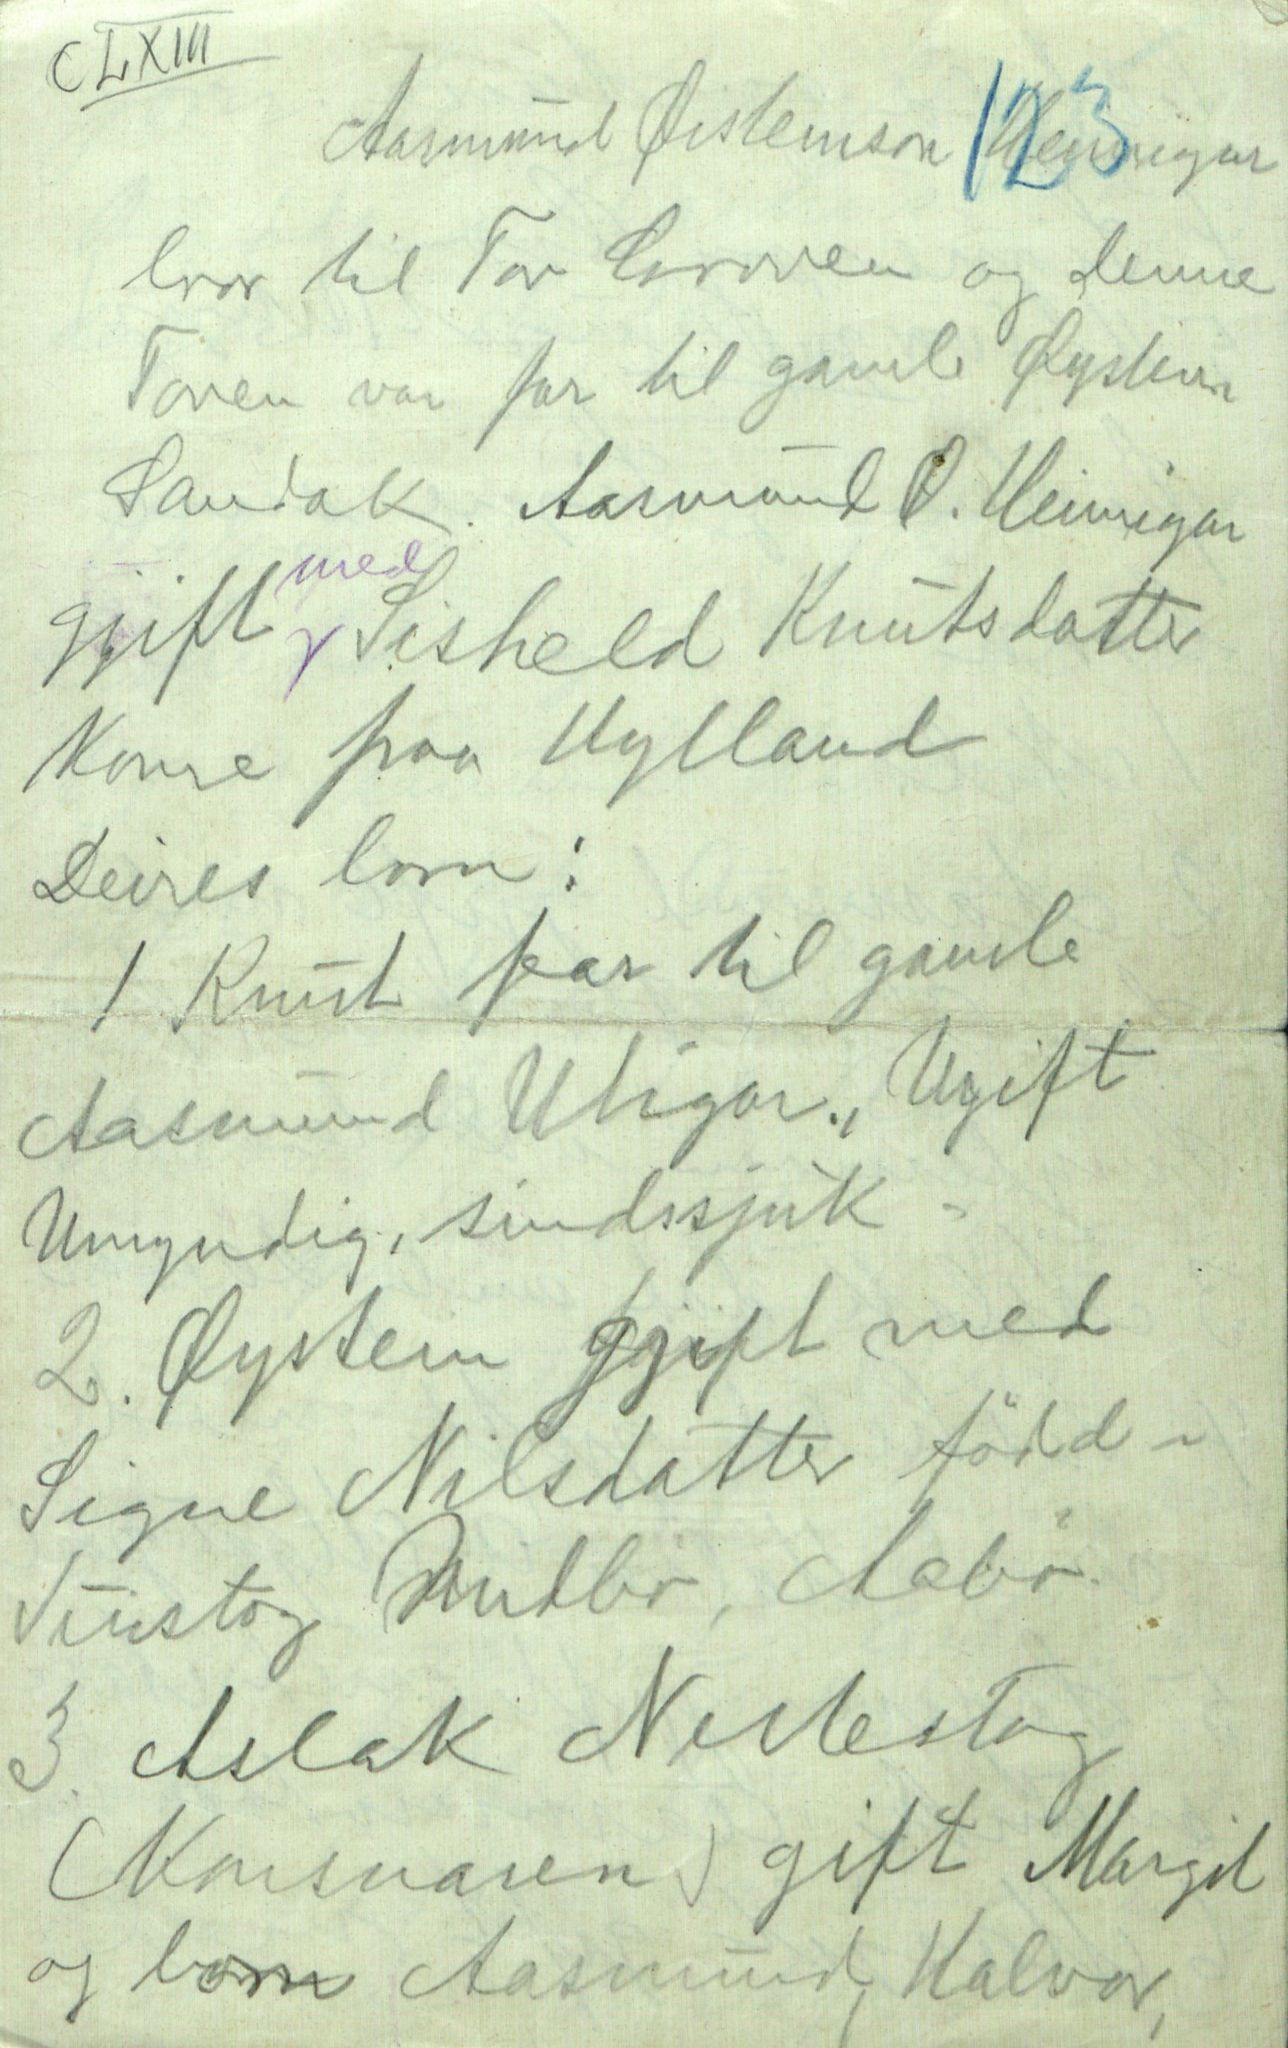 CLXIII
123
Aasmund Øisteinson Heimigar
bror til Tor and denne
Toren var far til gamle Øystein
Sandok. Aasmund Ø. Heimigar
gjift med Sisheld Knutsdatter
Kome fraa Hylland
Deires born:
1 Knut far til gamle
Aasmund Utigar., Ugift
Umyndig, sindssjuk -
2. Øystein gjift med
Signe Nilsdatter född -
Synstog Midbö, Aabö.
3. Aslak Nistestog
(Kornsnaren) gift Margit
og born Aasmund, Halvor,